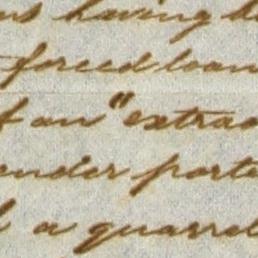 having
forced loan
an "extrao
under porte
a quarrel